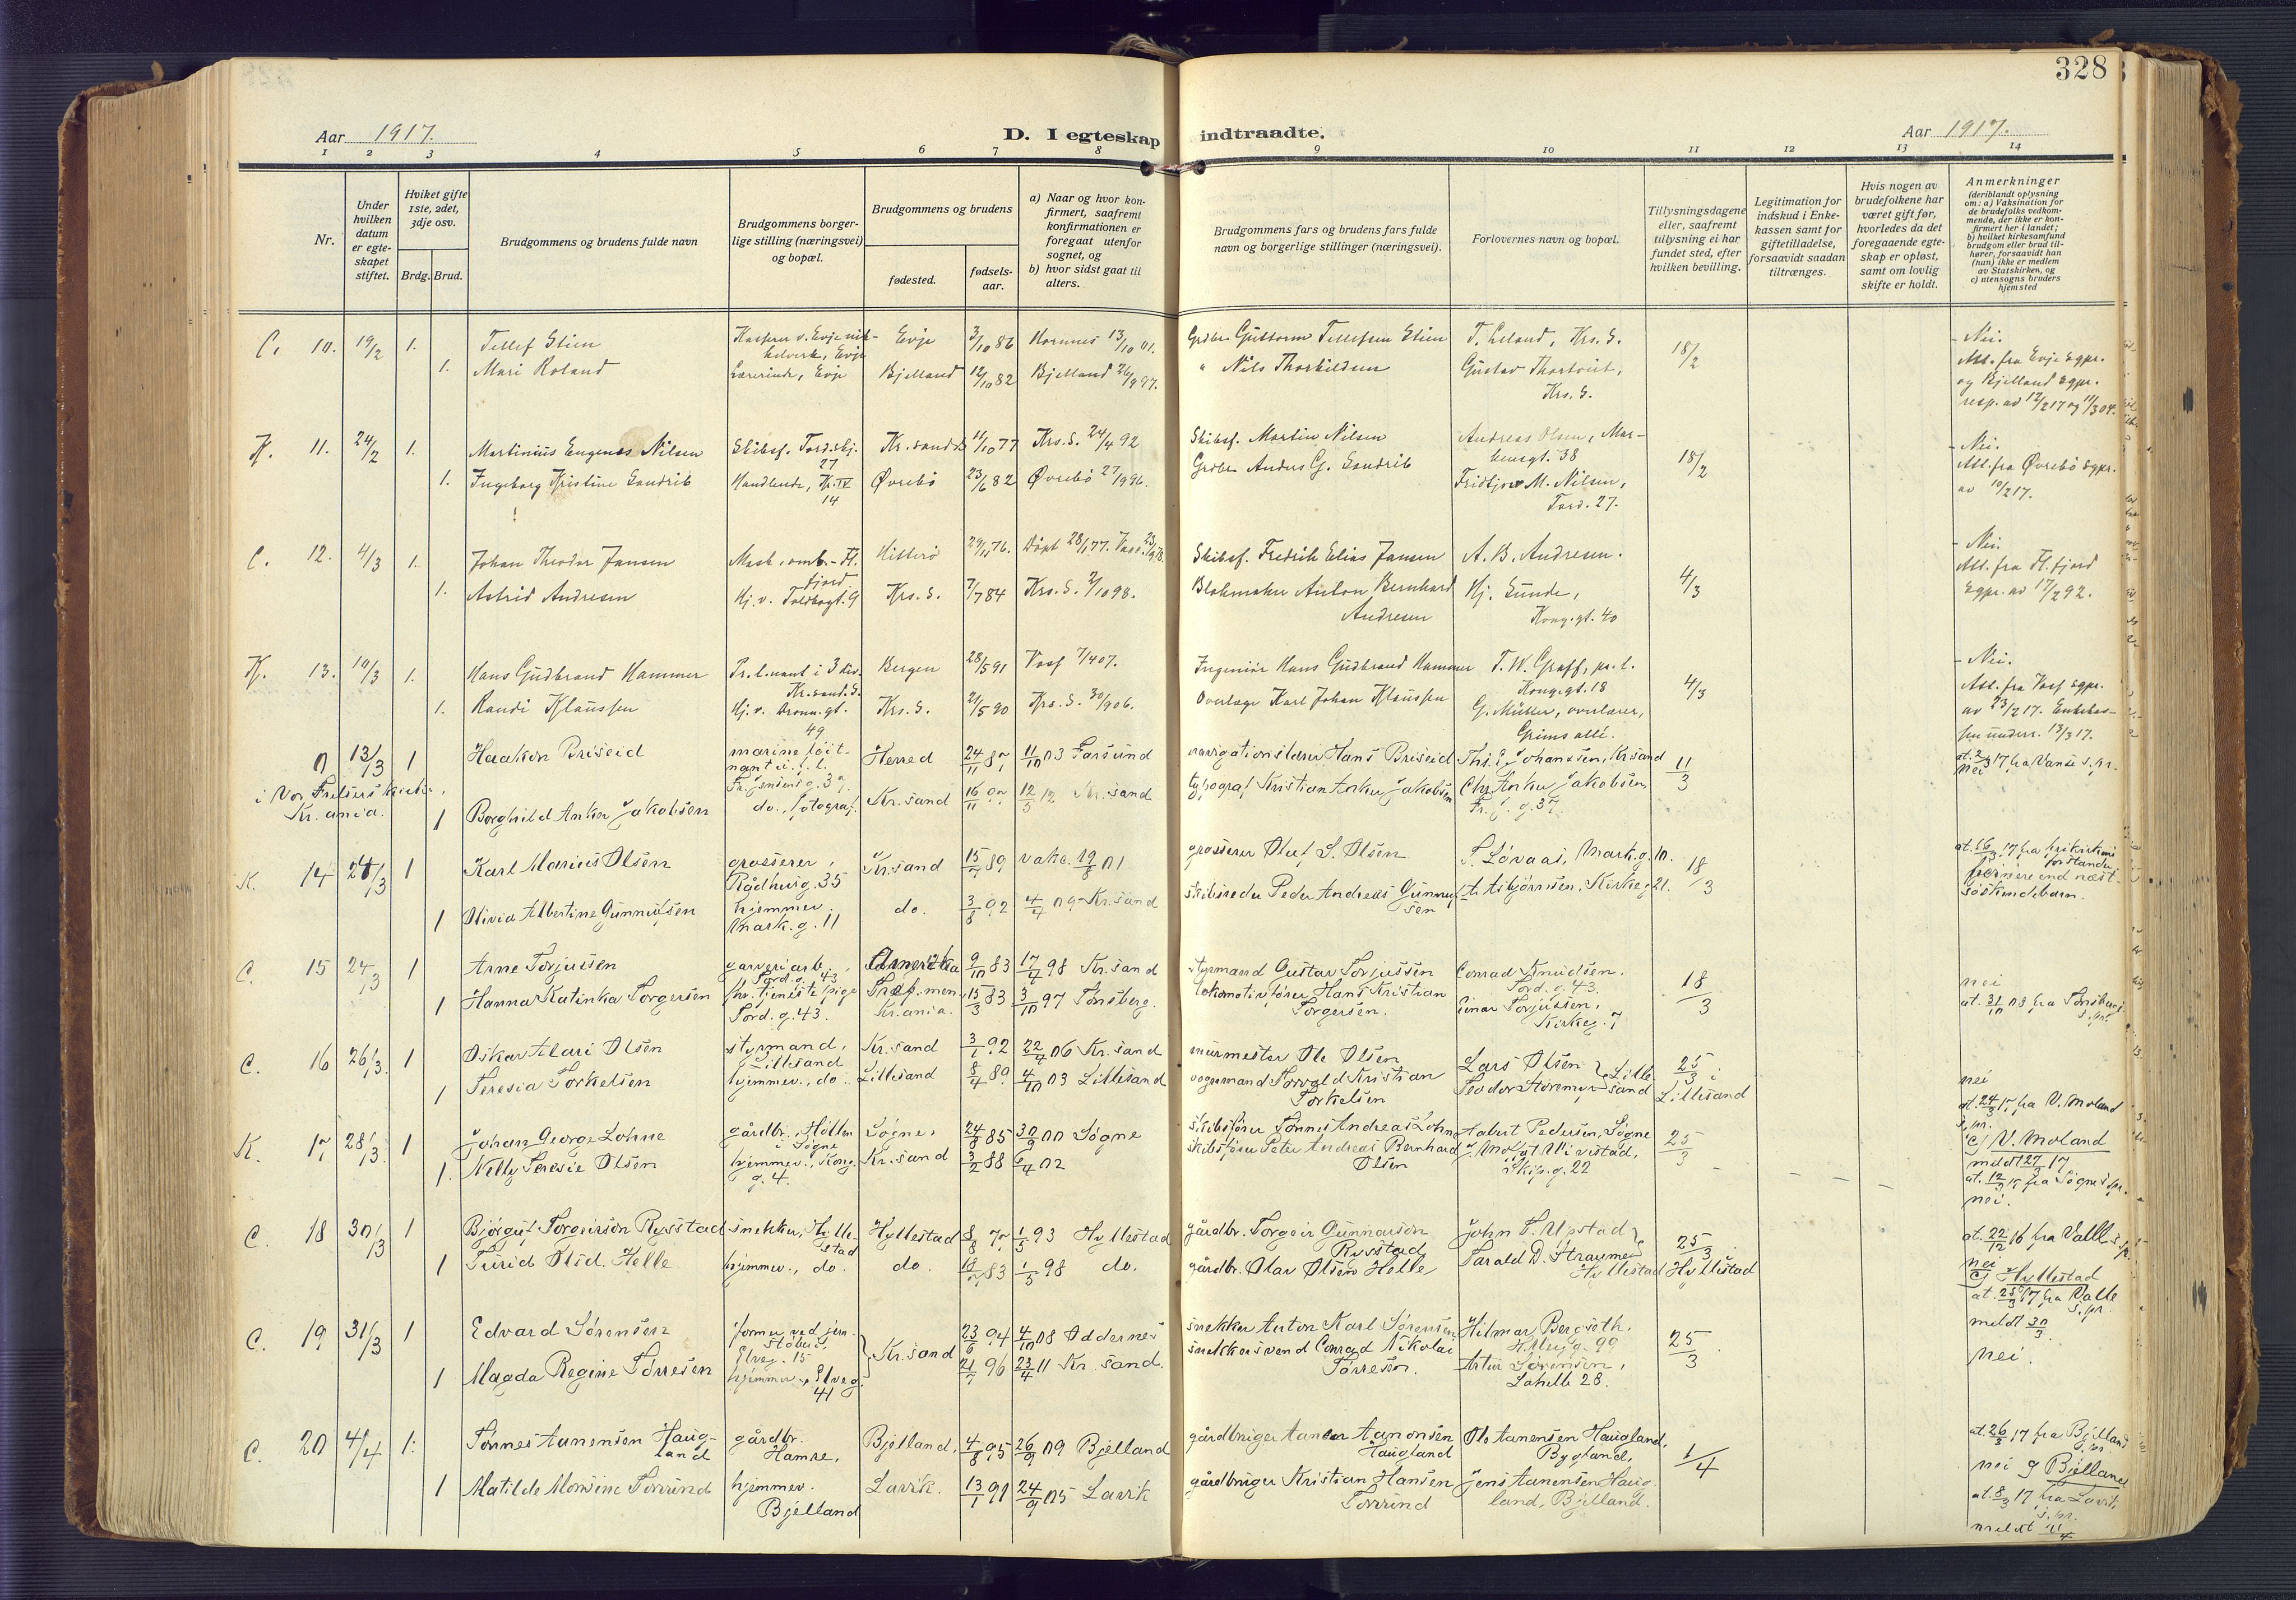 328
Aar 1917.
D. I egteskap indtraadte.
Aar 1917.
1 2 3 4 5 6 7 8 9 10 11 12 13 14
Nr.
Under hvilken datum er egteskapet stiftet.
Hvilket gifte 1ste, 2det, 3dje osv.
Brdg. Brud.
Brudgommens og brudens fulde navn
Brudgommens borgerlige stilling (næringsvei) og bopæl.
Brudgommens og brudens
fødested.
fødsels-aar.
a) Naar og hvor konfirmert, saafremt konfirmationen er foregaat utenfor sognet, og
b) hvor sidst gaat til alters.
Brudgommens fars og brudens fars fulde navn og borgerlige stillinger (næringsvei).
Forlovernes navn og bopæl.
Tillysningsdagene eller, saafremt tillysning ei har fundet sted, efter hvilken bevilling.
Legitimation for indskud i Enkekassen samt for giftetilladelse, forsaavidt saadan tiltrænges.
Hvis nogen av brudefolkene har været gift før, hvorledes da det foregaaende egteskap er opløst, samt om lovlig skifte er holdt.
Anmerkninger
(deriblandt oplysning om: a) Vaksination for de brudefolks vedkommende, der ikke er konfirmert her i landet;
b) hvilket kirkesamfund brudgom eller brud tilhører, forsaavidt han (hun) ikke er medlem av Statskirken, og
c) utensogns bruders hjemsted
C. 10. 19/2 1. Tellef Stien Kasserer v. Evje nikkelverk, Evje Evje 3/10 86 Hornnes 13/10 01. Grdbr. Guttorm Tellefsen Stien T. Leland, Krs. S. 18/2 - Nei.
1. Mari Roland Lærerinde, Evje Bjelland 12/10 82 Bjelland 26/9 97. " Nils Thorkildsen Gustav Thortveit, Krs. S. Att. fra Evje sgpr. og Bjelland sgpr. resp. av 12/2 17 og 11/3 04.
K. 11. 24/2 1. Martinius Eugenes Nilsen Skibsf. Tord.skj. 27 Kr.sand S 11/10 77 Krs. S. 24/4 92 Skibsf. Martin Nilsen Andreas Olsen, Markensgt. 38 18/2 - Nei.
1. Ingeborg Kristine Sandrib Handlende, Kr. IV 14 Øvrebö 23/6 82 Øvrebö 27/9 96. Grdbr. Anders G. Sandrib Fridtjov M. Nilsen, Tord. 27. Att. fra Øvrebö sgpr. av 10/2 17.
C. 12. 4/3 1. Johan Theodor Jansen Mask. omb. - Fl. fjord Hitterö 29/11 76. Döpt 28/1 77. Skibsf. Fredrik Elias Jansen A. B. Andresen. 4/3 - Nei.
1. Astrid Andresen Hj. v. Toldbogt. 9 Krs. S. 7/7 84 Krs. S. 2/10 98. Blokmaker Anton Bernhard Andresen Hj. Sunde, Kong.gt. 40 Att. fra Fl. fjord sgpr. av 17/2 92.
K. 13. 10/3 1. Hans Gudbrand Hammer Pr. l.nant i 3 div. Kr.sand. S. Bergen 28/5 91 Voss 7/4 07. Ingeniör Hans Gudbrand Hammer T. W. Graff, pr. l. Kong.gt. 18 4/3 - Nei.
1. Randi Klaussen Hj. v. Dronn.gt. 49 Krs. S. 21/5 90 Krs. S. 30/9 06. Overlæge Karl Johan Klaussen G. Müller, overlærer, Grims allé. Att. fra Voss sgpr. av 23/2 17. Enkekassen underr. 13/3 17.
0 13/3 1 Haakon Briseid marine löitnant Herred 24/11 87 11/10 03 Farsund navigationslærer Hans Briseid Ths. Johanssen, Kr.sand 11/3
i Vor Frelsers kirke, Kr.ania. 1 Borghild Anker Jakobsen do., fotograf. Kr.sand 16/11 97 12/5 12 Kr.sand typograf Kristian Anker Jakobsen Chr. Anker Jakobsen nei
K. 14 24/3 1 Karl Marius Olsen grosserer, Rådhusg. 35 Kr.sand 15/7 89 vaks. grosserer Oluf S. Olsen S. Lövaas, Mark.g. 10. 18/3
1 Olivia Albertine Gunniusen hjemmev. Mark.g. 11 do. 3/8 92 4/4 09 Kr.sand skibsreder Peder Andreas Gunniussen Asbjörnsen, Kirkeg. 21. fjernere end næstsöskendebarn.
C. 15 24/3 1 Arne Torjussen garveriarb., Tord.g. 43 Amerika 9/10 83 17/4 98 Kr.sand styrmand Gustav Torjussen Conrad Knudsen, Tord.g. 43. 18/3 nei
1 Hanna Katinka Torgersen fhv. tjenestepige Tord.g. 43. Kr.ania. 15/3 83 3/10 97 Tönsberg. lokomotivförer Hans Kristian Torgersen. Einar Torjussen, Kirkeg. 7 at. 31/10 03 fra Tönsberg s.pr.
C. 16 26/3 1 Oskar Alari Olsen styrmand, Lillesand Kr.sand 3/1 92 22/4 06 Kr.sand murmester Ole Olsen Lars Olsen 25/3 i Lillesand nei
1 Teresia Torkelsen hjemmev., do. Lillesand 8/4 89 4/10 03 Lillesand vognmand Torvald Kristian Torkelsen Teodor Støremyr Lillesand at. 24/3 17 fra V. Moland s.pr. C) V. Moland meldt 27/3 17
K. 17 28/3 1 Johan George Lohne gårdbr., Höllen i Sögne Sögne, 24/8 85 30/9 00 Sögne skibsförer Tönnes Andreas Lohne Aabert Pedersen, Sögne 25/3 at. 12/3 17 fra Sögne s.pr.
1. Nelly Teresie Olsen hjemmev., Kong.g. 4. Kr.sand 3/2 88 6/4 02 skibsförer Peter Andreas Bernhard Olsen Skip.g. 22 nei.
C. 18 30/3 1 Björgul Torgeirson Rysstad snekker, Hyllestad Hyllestad 8/8 77 1/5 93 Hyllestad gårdbr. Torgeir Gunnarson Rysstad John T. Upstad 25/3 i Hyllestad at. 22/12 16 fra Valle s.pr.
1 Turid Olsd. Helle hjemmev., do. do. 19/7 83 1/5 98 do. gårdbr. Olav Olsen Helle Tarald D. Straume Hyllestad nei C) Hyllestad at. 25/3 17 fra Valle s.pr. meldt 30/3.
C. 19 31/3 1 Edvard Sörensen former ved jernstöberi, Elveg. 15 Kr.sand 23/6 94 4/10 08 Oddernes snekker Anton Karl Sörensen Hilmar Bergseth, H.Mejg. 99 25/3
1 Magda Regine Törresen hjemmev., Elveg. 41 21/7 96 23/4 11 Kr.sand. snekkersvend Conrad Nikolai Törresen. Artur Sörensen, Lahelle 28. nei.
C. 20 4/4 1. Tönnes Aanensen Haugland gårdbr. Hamre, Bjelland, 4/8 95 26/9 09 Bjelland gårdbruger Aanen Aanonsen Haugland Ole Aanensen Haugland, Bygland, 1/4 at. 26/3 17 fra Bjelland s.pr.
1 Matilde Monsine Torrind hjemmev. Bjelland Lavik. 13/1 91 24/9 05 Lavik gårdbruger Kristian Hansen Torrind Jens Aanensen Haugland, Bjelland. nei C) Bjelland at. 8/3 17 fra Lavik s.pr. meldt 11/4